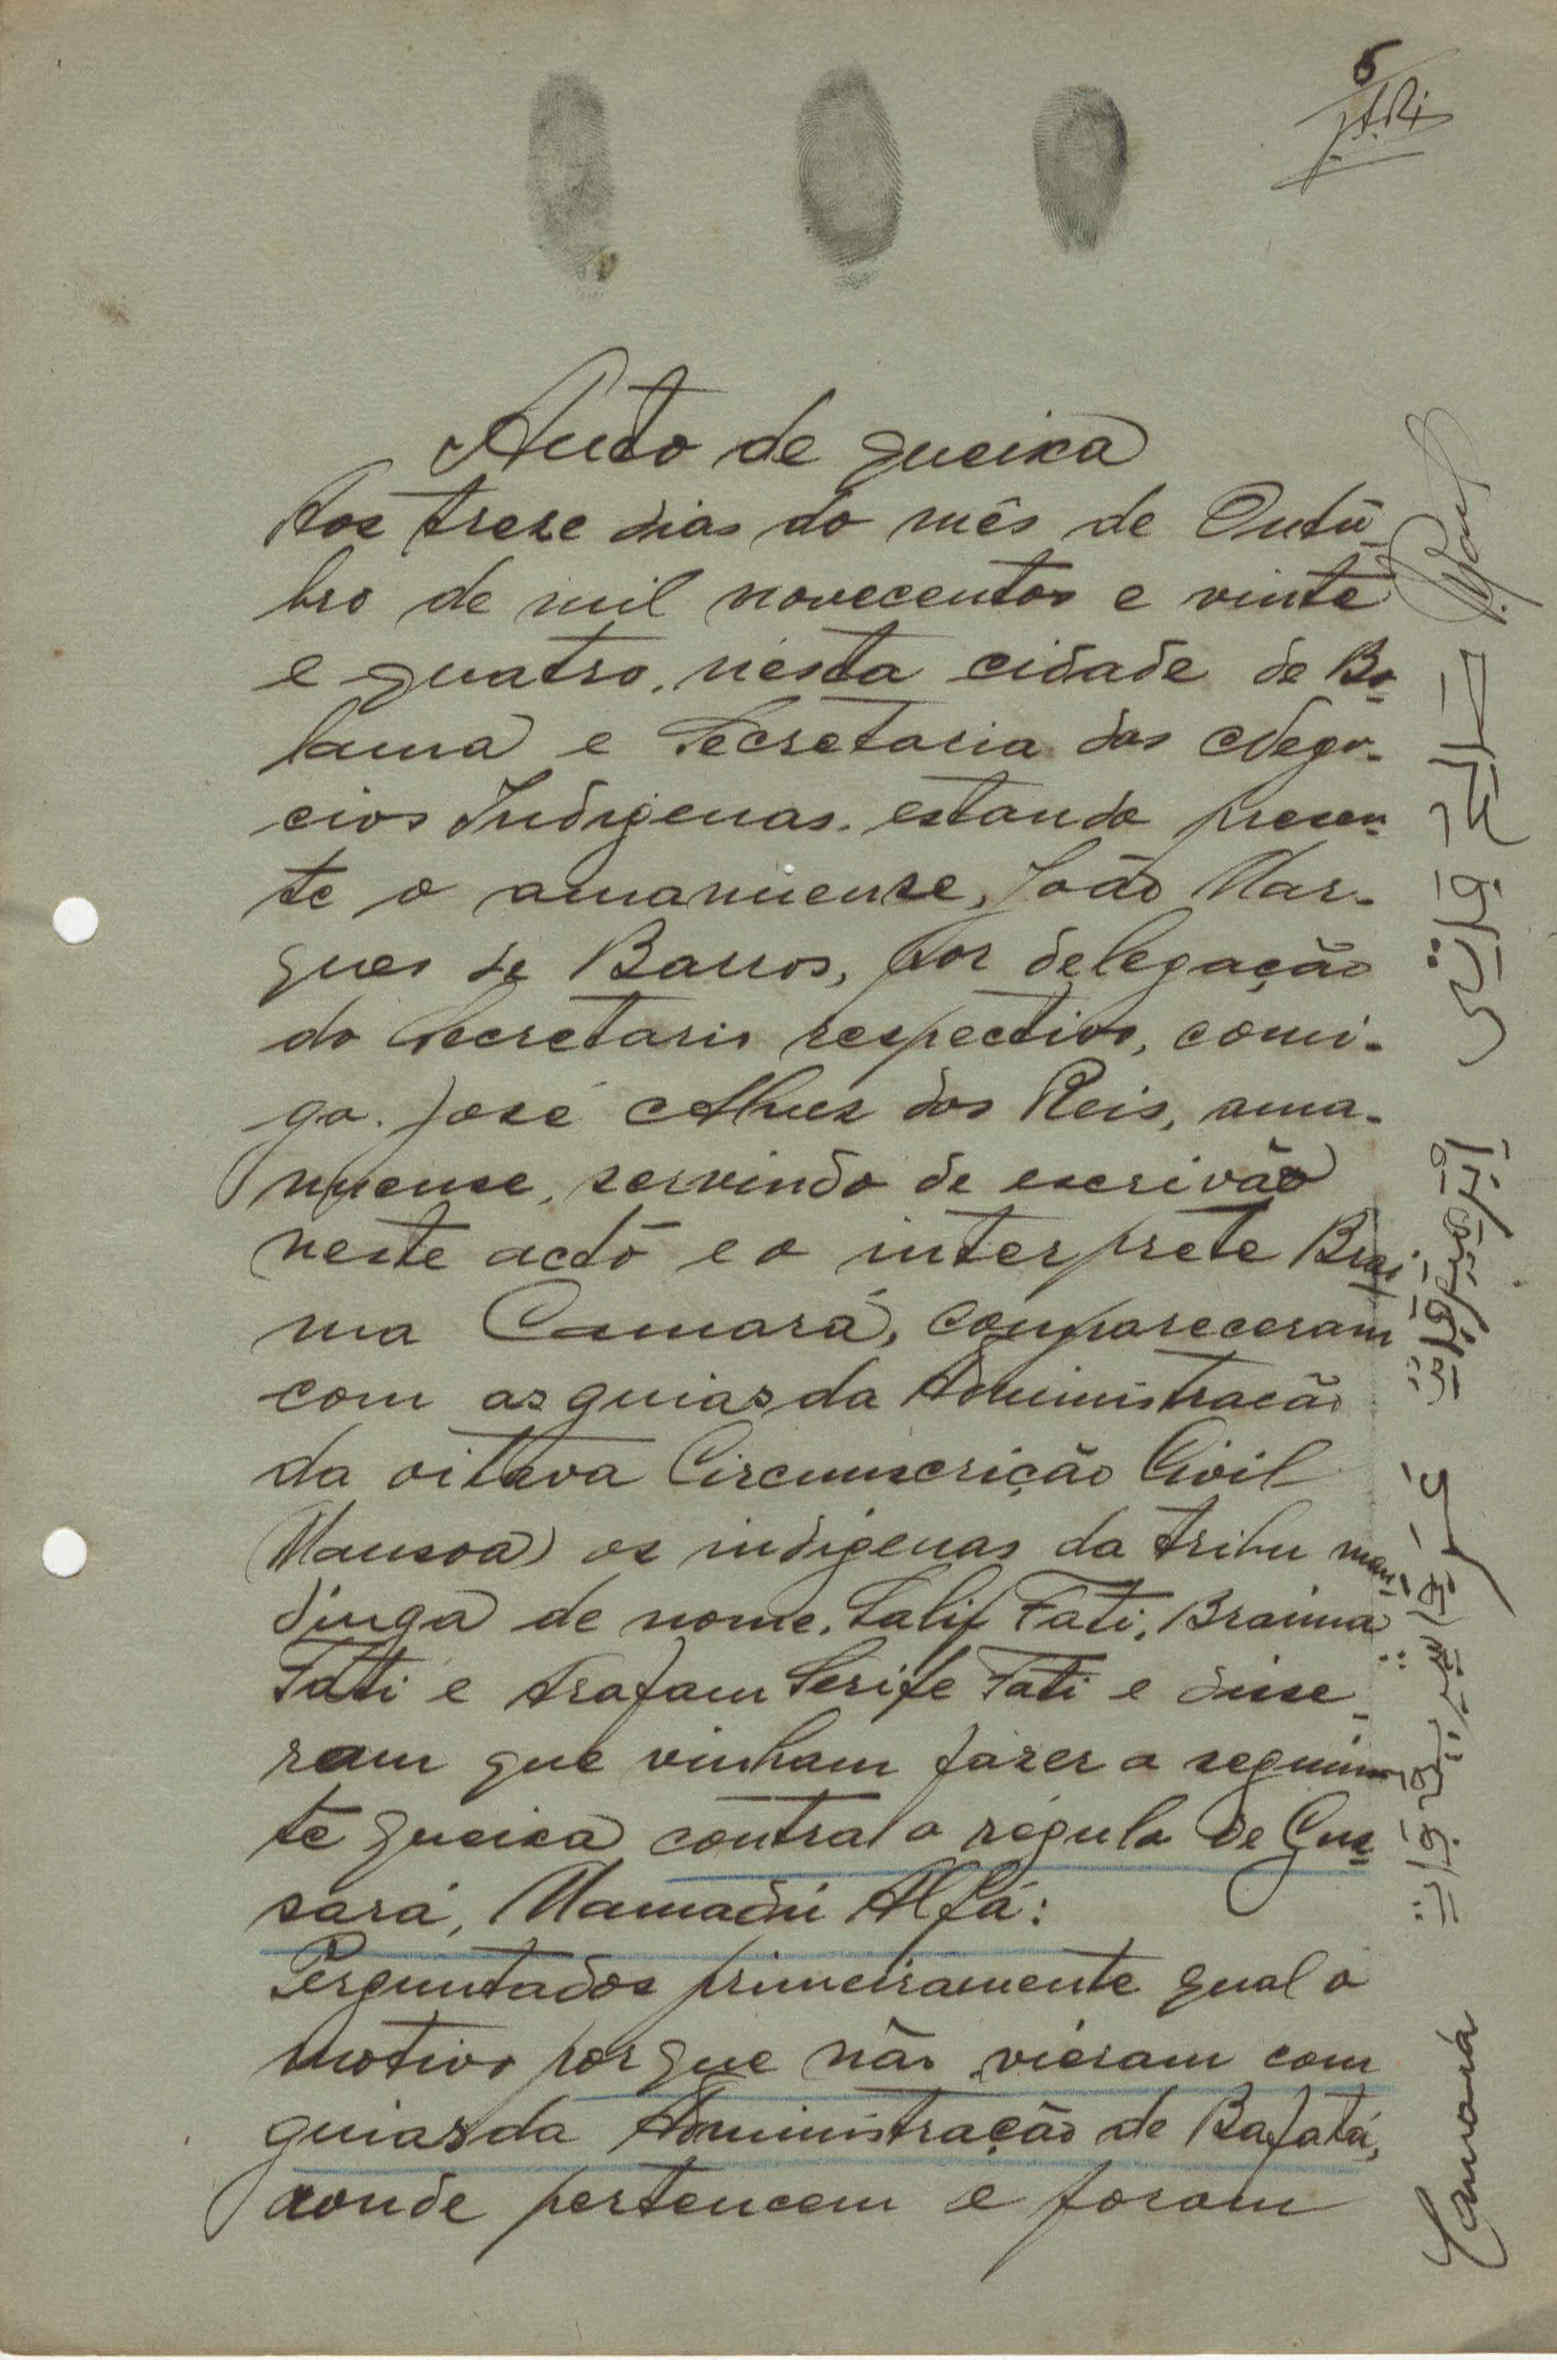 5
Auto de queixa
Aos treze dias do mês de Outu-
bro de mil novecentos e vinte
e quatro, nesta cidade de Bo-
lama e Secretaria dos Nego-
cios Indigenas, estando presen-
te o amanuense, João Mar-
ques de Barros, por delegação
do Secretario respectivo, comi-
go. José Alves dos Reis, ama-
nuense, servindo de escrivão
neste acto e o interprete Brai-
ma Camará, compareceram
com as guias da Administração
da oitava Circunscrição Civil
(Mansoa) os indigenas da tribu man-
dinga de nome, Salif Fati, Braima
Fati e Arafam Serife Fati e disse-
ram que vinham fazer a seguin-
te queixa contra o régulo de Cus-
sará, Mamadú Alfá:
Perguntados primeiramente qual o
motivo porque não vieram com
guias da Administração de Bafatá,
aonde pertencem e foram
Camará